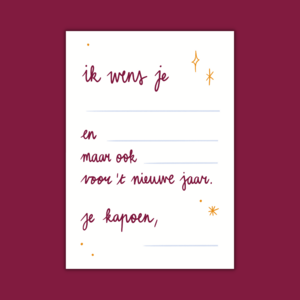 ik wens je
en
maar ook
voor 't nieuwe jaar.
je kapoen,